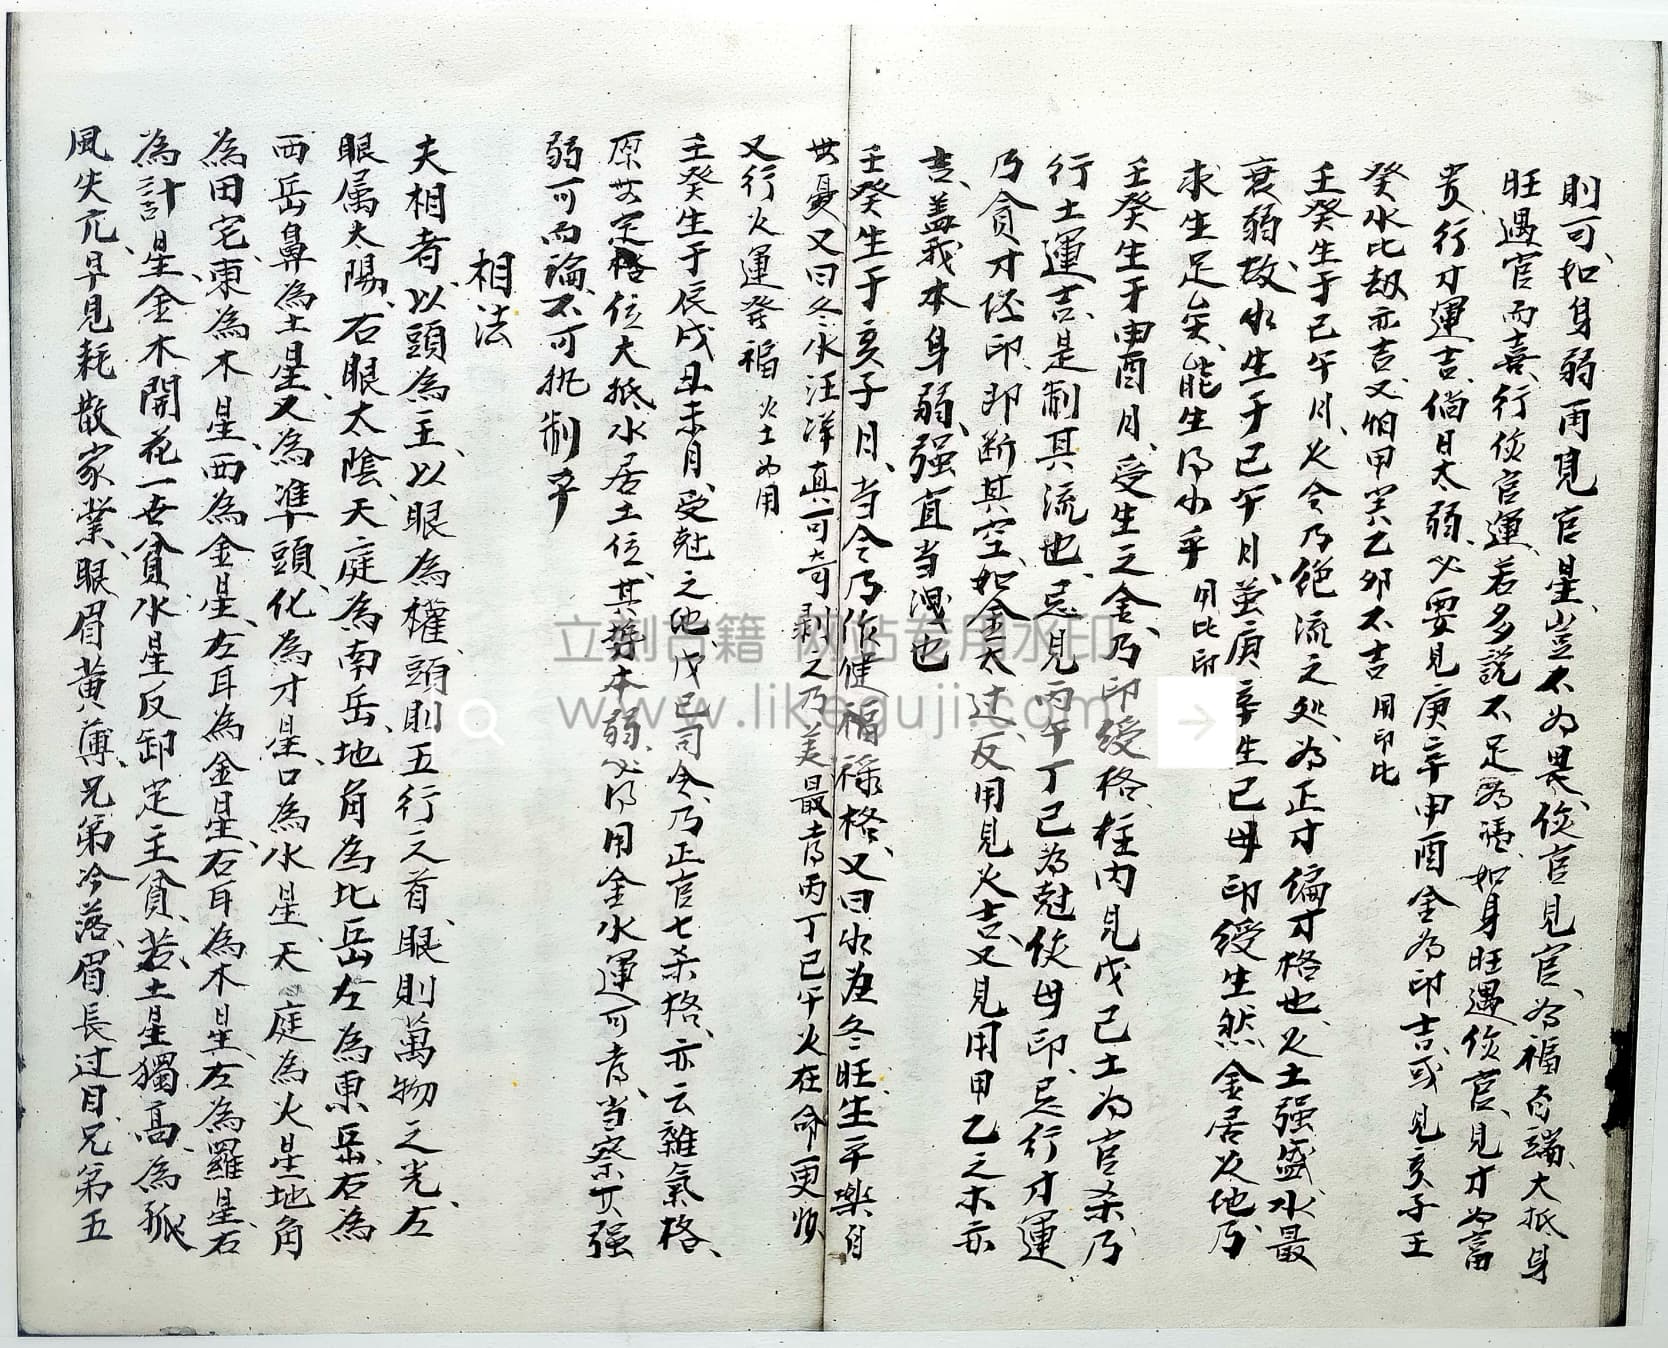 則可、如身弱再見官星、豈不為畏、伩官見官、為福百端、大抵身
旺遇官而喜、行伩官運、若多説不足為憑、如身旺遇伩官、見才為富
貴、行才運吉、倘日太弱、必要見庚辛申酉金為印吉、或見亥子壬
癸水比劫亦吉、又怕甲寅乙卯不吉 用印比
壬癸生于巳午月、火令乃绝流之処、為正才偏才格也、火土强盛、水最
衰弱、故水生于巳午月、並庚辛生巳、毋印绶生然、金居火地、乃
求生足矣、能生得水乎 用比印
壬癸生于申酉月、受生之金、乃印绶格、柱内見戊己土為官杀、乃
行土運吉、是制其流也、忌見丙午丁巳為尅伩母印、忌行才運
乃貪才怌印、即断其空、如金太过、反用見火吉、又見用甲乙之木亦
吉、盖我本身弱、强宜当洩也
壬癸生于亥子月、当令乃作健福禄格、又曰水為冬旺、生平樂自
世憂、又曰冬水汪洋真可奇、剥之乃美最孝、丙丁巳午火在命、更妙
又行火運発福 火土為用
壬癸生于辰戌丑未月、受尅之地、戊己司令、乃正官七杀格、亦云雜氣格、
原世定格位、大抵水居土位、其势本弱、必得用金水運可孝、当察其强
弱可而論、不可执制乎
相法
夫相者、以頭為主、以眼為權、頭則五行之首、眼則萬物之光、左
眼属太陽、右眼太陰、天庭為南岳、地角為北岳、左為東岳、右為
西岳、鼻為土星、又為準頭、化為才星、口為水星、天庭為火星、地角
為田宅、東為木星、西為金星、左耳為金星、右耳為木星、左為羅星、右
為計星、金木開花一世貧、水星反卸定主貧、若土星獨高、為孤
風失亢、早見耗散家業、眼眉黄薄、兄弟冷落、眉長过目、兄弟五
立刻古籍 网站专用水印
www.likeguji.com